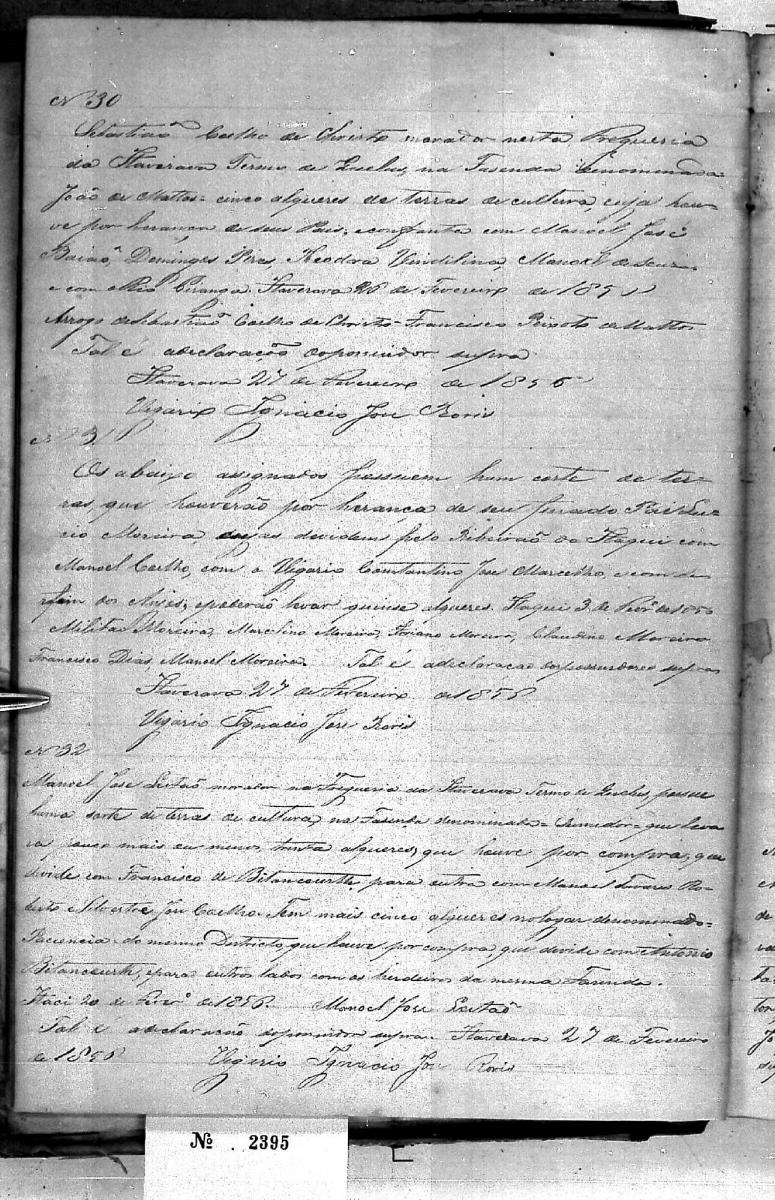 Nº 30
Sebastião Coelho de Christo morador nesta Freguesia
da Itaverava Termo de Queluz, na Fasenda denominada
João de Mattos = cinco alqueres de terras de cultura, cuja hou-
ve por herança de seus Pais; e confronta com Manoel José
Baião, Domingos Pires, Theodora Vindilina, Manoel de Souza
e com o Rio Piranga. Itaverava 26 de Fevereiro de 1856
Arrogo de Sebastião Coelho de Christo = Francisco Peixoto de Mattos
Tal é a declaração do possuidor supra
Itaverava 27 de Fevereiro de 1856
Vigario Ignacio Jose
Nº 31
Os abaixo assignados possuem hum corte de ter-
ras, que houverão por herança de seu finado Pai Lu-
cio Moreira, devidem pelo Ribeirão do Itaqui com
Manoel Coelho, com o Vigario Constantino Jose Marcelho, e com Se-
rafim dos Anjos; e poderão levar quinse alqueres. Itaqui 3 de Fevrº de 1856
Militão Moreira, Marcelino Moreira, Floriano Moreira, Claudino Moreira
Francisco Dias, Manoel Moreira. Tal é a declaração dos possuidores supra
Itaverava 27 de Fevereiro de 1856
Vigario Ignacio Jose
Nº 32
Manoel Jose Leitão morador na Freguesia da Itaverava Termo de Queluz, possue
huma sorte de terras de cultura, na Fasenda denominada = = que leva
rá pouco mais ou menos, trinta alqueres, que houve por compra, que
divide com Francisco de Bitancourth, para outra com Manoel Tavares Ro-
berto e Silvestre Jose Coelho. Tem mais cinco alqueres no logar denominado =
Paciencia = do mesmo Districto, que houve por compra, que devide com Antonio
Bitancourth, e para outros lados com os herdeiros da mesma Fazenda.
20 de Fevrº de 1856. Manoel Jose Leitão
Tal é a declaração do possuidor supra. Itaverava 27 de Fevereiro
de 1856 Vigario Ignacio Jose
Nº 2395